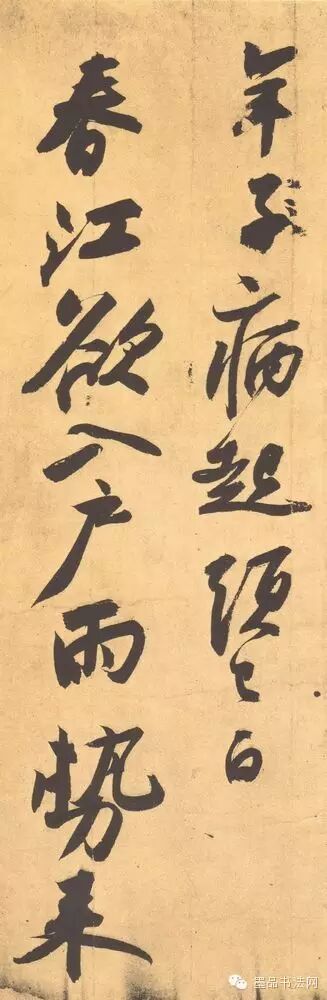 年子病起頭已白
春江欲入戶雨勢來
墨品书法网